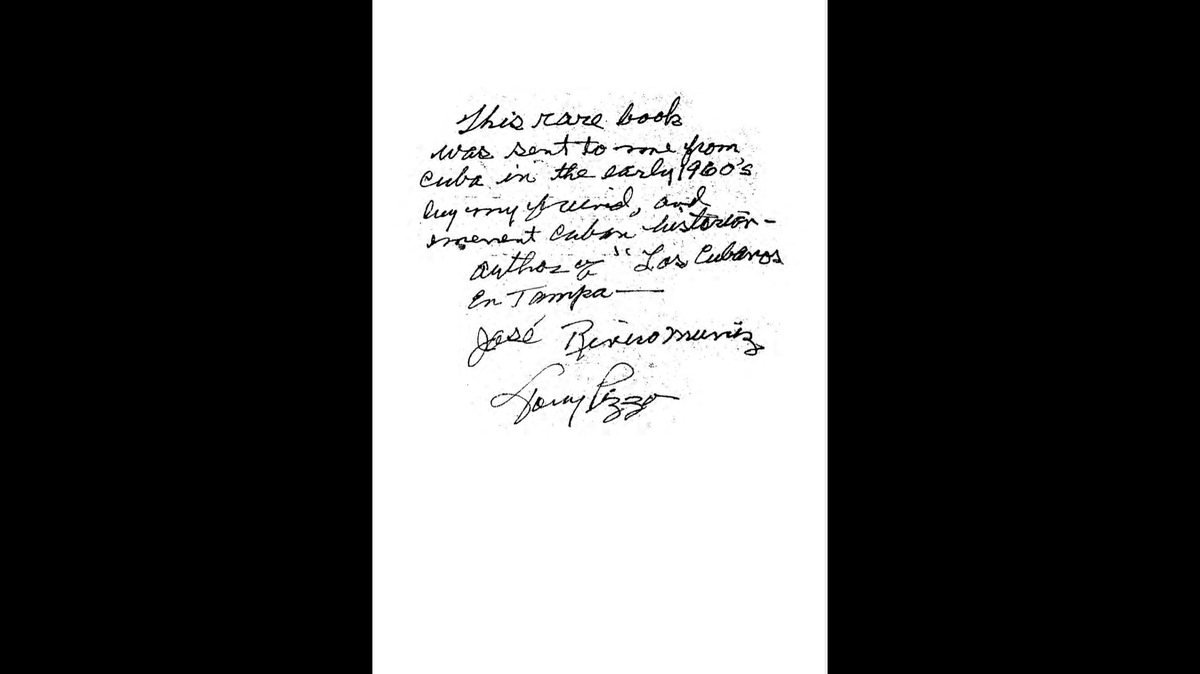 This rare book
was sent to me from
Cuba in the early 1960's
by my friend, and
emenent Cuban historian -
author of "Los Cubanos
En Tampa —
José Rivero Muniz
Tony Pizzo